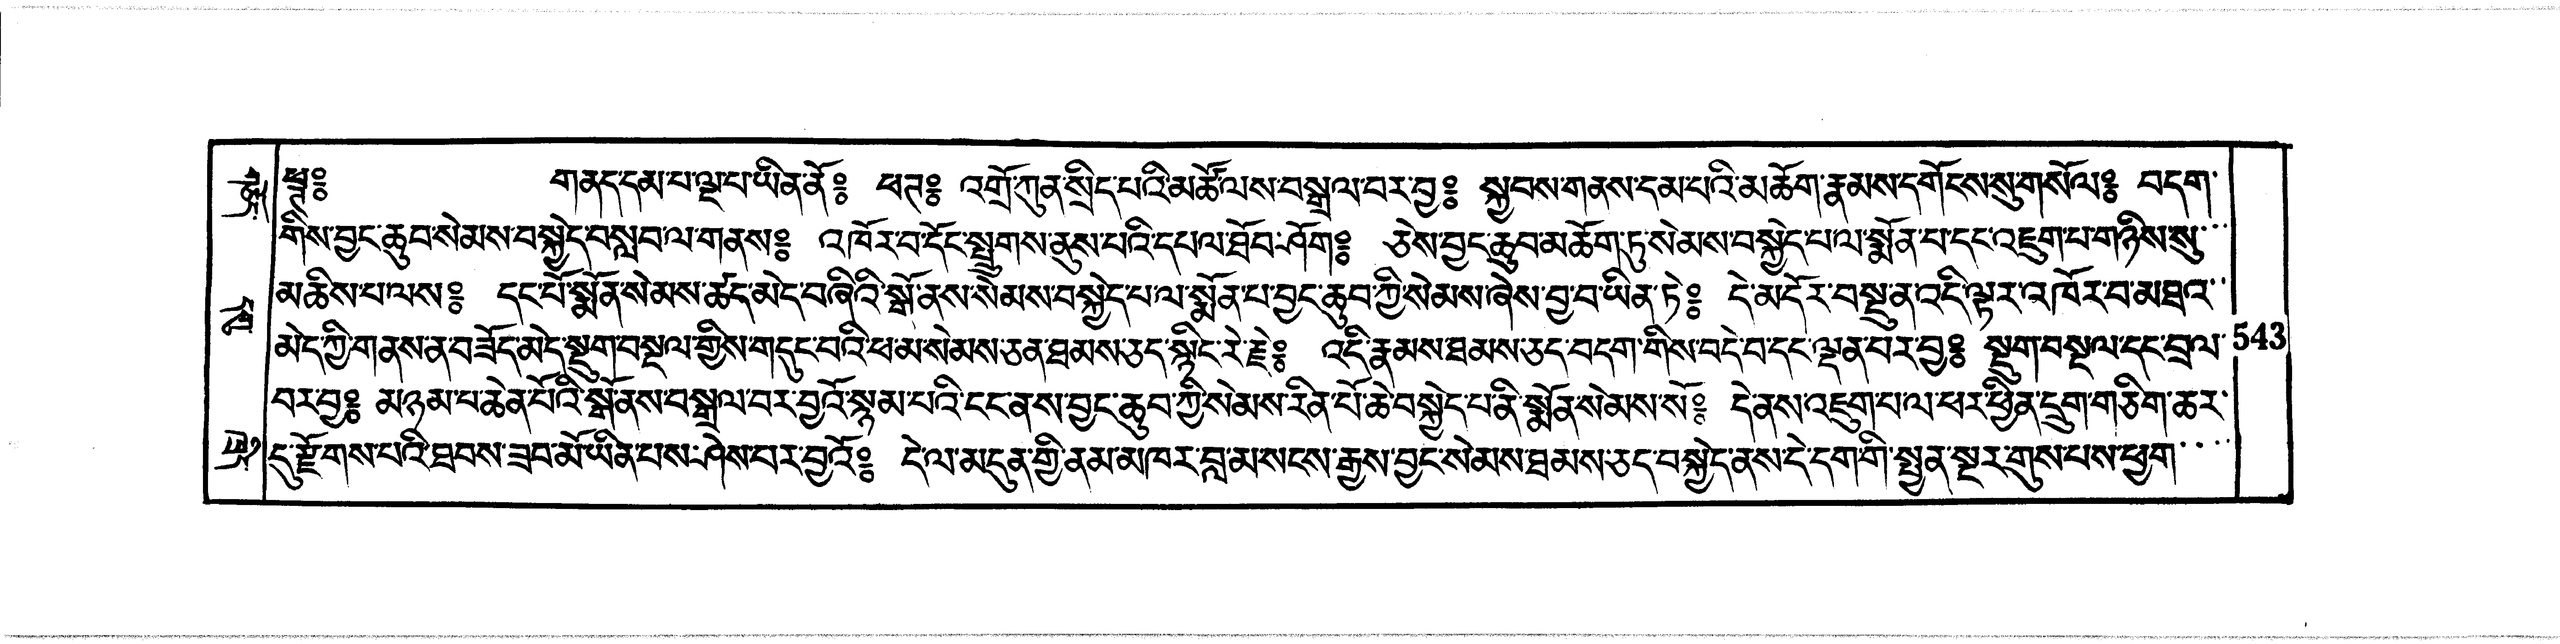 ཕྲྀ༔ གནད་དམ་པ་ལྔ་པ་ཡིན་ནོ༔ ཕཊ༔ འགྲོ་ཀུན་སྲིད་པའི་མཚོ་ལས་བསྒྲལ་བར་བྱ༔ སྐྱབས་གནས་དམ་པའི་མཆོག་རྣམས་དགོངས་སུ་གསོལ༔ བདག་
གིས་བྱང་ཆུབ་སེམས་བསྐྱེད་བསླབ་ལ་གནས༔ འཁོར་བ་དོང་སྤྲུགས་ནུས་པའི་དཔལ་ཐོབ་ཤོག༔ ཅེས་བྱང་ཆུབ་མཆོག་ཏུ་སེམས་བསྐྱེད་པ་ལ་སྨོན་པ་དང་འཇུག་པ་གཉིས་སུ་
མཆིས་པ་ལས༔ དང་པོ་སྨོན་སེམས་ཚད་མེད་བཞིའི་སྒོ་ནས་སེམས་བསྐྱེད་པ་ལ་སྨོན་པ་བྱང་ཆུབ་ཀྱི་སེམས་ཞེས་བྱ་བ་ཡིན་ཏེ༔ དེ་མདོར་བསྡུན་འདི་ལྟར་འཁོར་བ་མཐའ་
མེད་ཀྱི་གནས་ན་བཟོད་མེད་སྡུག་བསྔལ་གྱིས་གདུང་བའི་ཕ་མ་སེམས་ཅན་ཐམས་ཅད་སྙིང་རེ་རྗེ༔ འདི་རྣམས་ཐམས་ཅད་བདག་གིས་བདེ་བ་དང་ལྡན་བར་བྱ༔ སྡུག་བསྔལ་དང་བྲལ་
543
བར་བྱ༔ མཉམ་པ་ཆེན་པོའི་སྒོ་ནས་བསྒྲལ་བར་བྱའོ་སྙམ་པའི་ངང་ནས་བྱང་ཆུབ་ཀྱི་སེམས་རིན་པོ་ཆེ་བསྐྱེད་པ་ནི་སྨོན་སེམས་སོ༔ དེ་ནས་འཇུག་པ་ལ་ཕར་ཕྱིན་དྲུག་གཅིག་ཆར་
དུ་རྫོགས་པའི་ཐབས་ཟབ་མོ་ཡིན་པས་ཤེས་བར་བྱའོ༔ དེ་ལ་མདུན་གྱི་ནམ་མཁར་བླ་མ་སངས་རྒྱས་བྱང་སེམས་ཐམས་ཅད་བསྐྱེད་ནས་དེ་དག་གི་སྤྱན་སྔར་གུས་པས་ཕྱག་